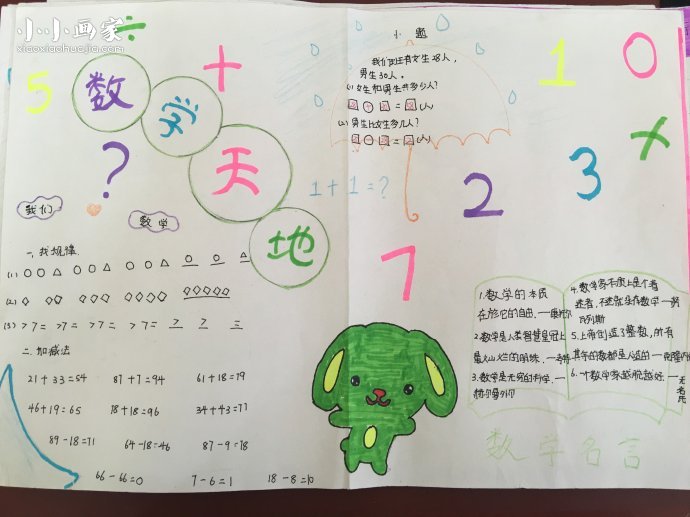 小小画家
xiaoxiaohuajia.com
÷
+
5
数学天地
?
1+1=?
1
0
×
2
3
7
小题
我们班有女生28人,
男生30人。
(1)女生和男生共多少人?
(2)男生比女生多几人?
我们
数学
一、找规律
(1) ○○△ ○○△ ○○△ ○○△
(2)
(3)
二、加减法
21+33=54 87+7=94 61+18=79
46+19=65 18+18=96 34+43=77
89-18=71 64-18=46 87-9=78
66-66=0 7-6=1 18-8=10
1.数学的本质
在於它的自由.—康托尔
2.数学是人类智慧皇冠上
最灿烂的明珠.
3.数学是无穷的科学.—
赫尔曼外尔
4.数学家本质上是个着
迷者,不迷就没有数学—努
瓦列斯
5.上帝创造了整数,所有
其余的数都是人造的
6.一个数学家越超脱越好.—无名氏
数学名言